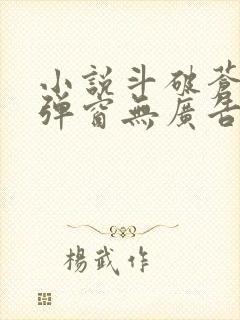 小說斗破蒼
彈窗無廣告
楊武作